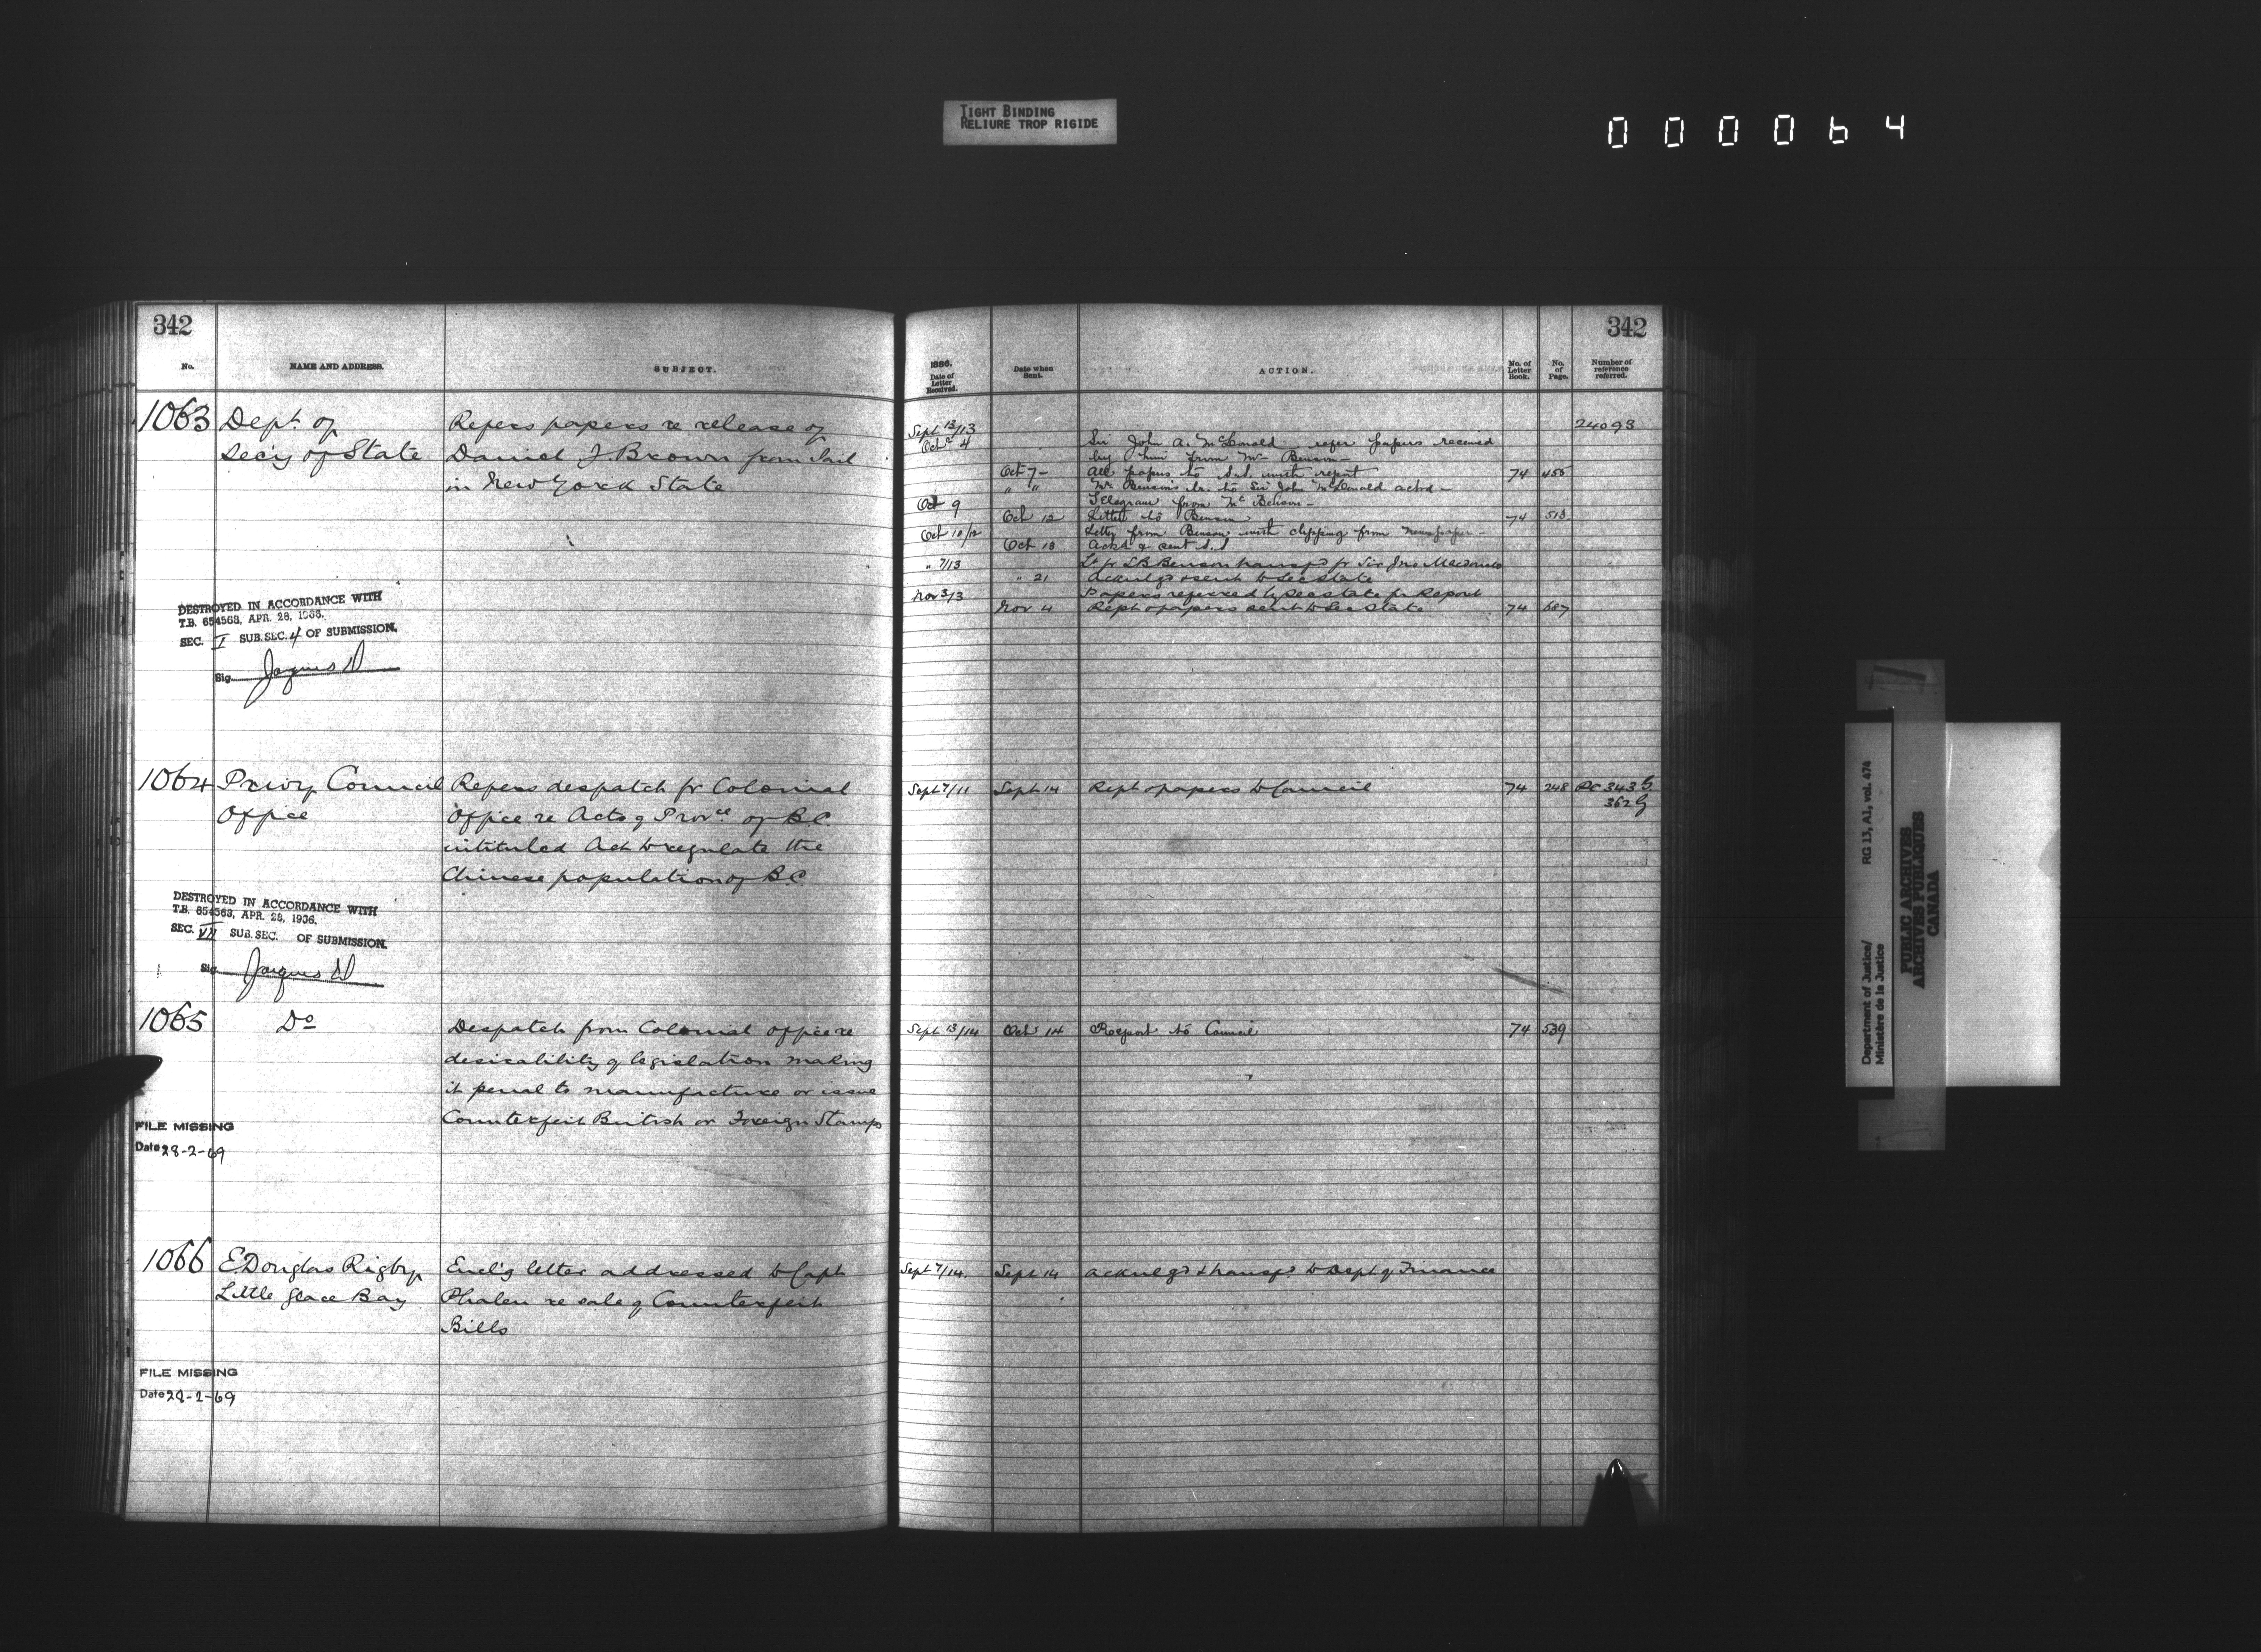 TIGHT BINDING
RELIURE TROP RIGIDE
000064
342
No.
NAME AND ADDRESS.
SUBJECT.
1063 Dept. of
Sec'y of State
Refers papers re release of
Daniel J. Brown from Jail
in New York State
DESTROYED IN ACCORDANCE WITH
T.B. 654563, APR. 28, 1936.
SEC. I SUB. SEC. 4 OF SUBMISSION.
Sig.
1064 Privy Council
Office
Refers despatch fr Colonial
Office re Acts of Provce of B.C.
intituled Act to regulate the
Chinese population of B.C.
DESTROYED IN ACCORDANCE WITH
T.B. 654563, APR. 28, 1936.
SEC. VII SUB. SEC. OF SUBMISSION.
Sig.
1065 Do
Despatch from Colonial office re
desirability of legislation making
it penal to manufacture or issue
Counterfeit British or Foreign Stamps
FILE MISSING
Date 28-2-69
1066 E. Douglas Rigby
Little Glace Bay
Encl'g letter addressed to Capt
Phalen re sale of Counterfeit
Bills
FILE MISSING
Date 28-2-69
342
1886.
Date of
Letter
Received.
Date when
Sent.
ACTION.
No. of
Letter
Book.
No.
of
Page.
Number of
reference
referred.
Sept 13/13 24093
Oct 4 Sir John A. McDonald refer papers received
by him from Mr Benson
Oct 7 - All papers to S.S. with report 74 455
" " Mr Benson's lr. to Sir John McDonald ackd -
Oct 9 Telegram from Mr Benson -
Oct 12 Letter to Benson 74 513
Oct 10/12 Letter from Benson with clipping from newspaper -
Oct 18 Ackd & sent S.S
" 7/13 Lr fr Benson transfd fr Sir Jno Macdonald
" 21 Acknlgd & sent to Sec State
Nov 3/3 Papers referred by Sec State for Report
Nov 4 Rept & papers sent to Sec State 74 687
Sept 7/11 Sept 14 Rept & papers to Council 74 248 PC 343 G
362 G
Sept 13/14 Oct 14 Report to Council 74 539
Sept 7/14. Sept 14 Acknlgd & transfd to Dept of Finance
Department of Justice/
Ministère de la Justice
RG 13, A1, vol. 474
PUBLIC ARCHIVES
ARCHIVES PUBLIQUES
CANADA